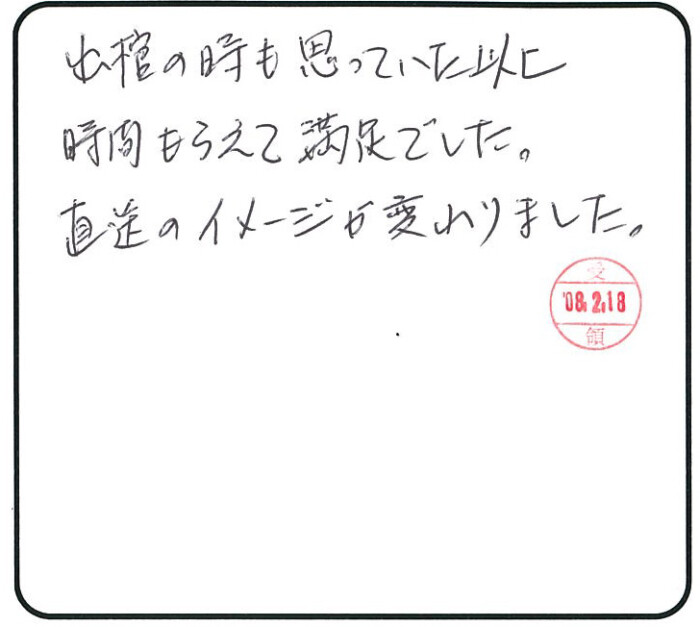 出棺の時も思っていた以上
時間もらえて満足でした。
直送のイメージが変わりました。
受
'08.2.18
領